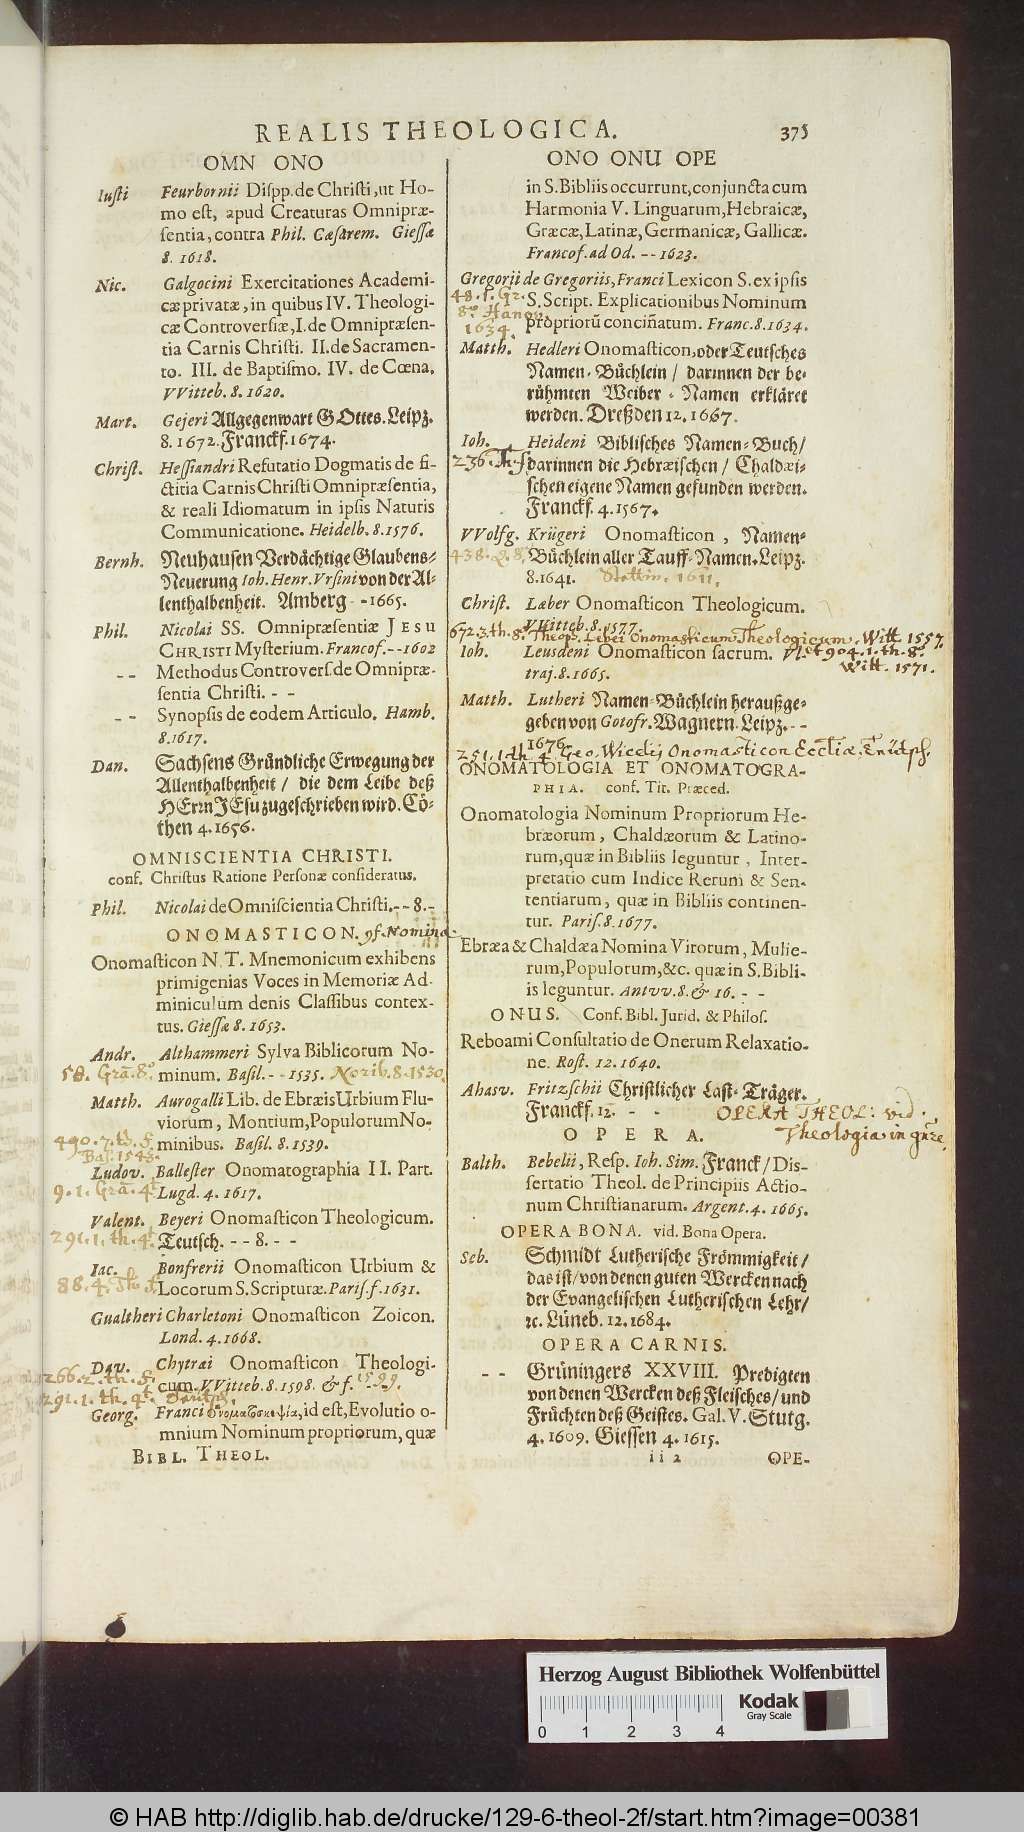 REALIS THEOLOGICA. 375
OMN ONO
Iusti Feurbornii Dispp. de Christi, ut Ho-
mo est, apud Creaturas Omnipræ-
sentia, contra Phil. Cæsarem. Giessæ
8. 1618.
Nic. Galgocini Exercitationes Academi-
cæ privatæ, in quibus IV. Theologi-
cæ Controversiæ, I. de Omnipræsen-
tia Carnis Christi. II. de Sacramen-
to. III. de Baptismo. IV. de Cœna.
VVitteb. 8. 1620.
Mart. Gejeri Allgegenwart GOttes. Leipz.
8. 1672. Franckf. 1674.
Christ. Hessiandri Refutatio Dogmatis de fi-
ctitia Carnis Christi Omnipræsentia,
& reali Idiomatum in ipsis Naturis
Communicatione. Heidelb. 8. 1576.
Bernh. Neuhausen Verdächtige Glaubens-
Neuerung Ioh. Henr. Ursini von der Al-
lenthalbenheit. Amberg - - 1665.
Phil. Nicolai SS. Omnipræsentiæ JESU
CHRISTI Mysterium. Francof. - - 1602
- - Methodus Controvers. de Omnipræ-
sentia Christi. - -
- - Synopsis de eodem Articulo. Hamb.
8. 1617.
Dan. Sachsens Gründliche Erwegung der
Allenthalbenheit / die dem Leibe deß
HErrn JEsu zugeschrieben wird. Cö-
then 4. 1656.
OMNISCIENTIA CHRISTI.
conf. Christus Ratione Personæ consideratus.
Phil. Nicolai de Omniscientia Christi. - - 8. -
ONOMASTICON. cf. Nomina
Onomasticon N. T. Mnemonicum exhibens
primigenias Voces in Memoriæ Ad-
miniculum denis Classibus contex-
tus. Giessæ 8. 1653.
Andr. Althammeri Sylva Biblicorum No-
58. Gra. 8º minum. Basil. - - 1535. Norib. 8. 1530.
Matth. Aurogalli Lib. de Ebræis Urbium Flu-
viorum, Montium, Populorum No-
490. 7. th. f. minibus. Basil. 8. 1539.
Bas. 1543.
Ludov. Ballester Onomatographia II. Part.
9. 1. Gra. 4º Lugd. 4. 1617.
Valent. Beyeri Onomasticon Theologicum.
291. 1. th. 4º Teutsch. - - 8. - -
Iac. Bonfrerii Onomasticon Urbium &
88. 4. Th. f. Locorum S. Scripturæ. Paris. f. 1631.
Gualtheri Charletoni Onomasticon Zoicon.
Lond. 4. 1668.
Dav. Chytræi Onomasticon Theologi-
266. 2. th. f. cum. VVitteb. 8. 1598. & f. - - 1599.
291. 1. th. 4º
Georg. Franci ὀνοματοσκοψία, id est, Evolutio o-
mnium Nominum propriorum, quæ
BIBL. THEOL.
ONO ONU OPE
in S. Bibliis occurrunt, conjuncta cum
Harmonia V. Linguarum, Hebraicæ,
Græcæ, Latinæ, Germanicæ, Gallicæ.
Francof. ad Od. - - 1623.
Gregorii de Gregoriis, Franci Lexicon S. ex ipsis
48. 1. Gr. S. Script. Explicationibus Nominum
8º Hanov. propriorũ concin̄atum. Franc. 8. 1634.
1634.
Matth. Hedleri Onomasticon, oder Teutsches
Namen-Büchlein / darinnen der be-
rühmten Weiber-Namen erkläret
werden. Dreßden 12. 1667.
Ioh. Heideni Biblisches Namen-Buch /
236. Th. f. darinnen die Hebræischen / Chaldæi-
schen eigene Namen gefunden werden.
Franckf. 4. 1567.
VVolfg. Krügeri Onomasticon, Namen-
438. Q. 8º Büchlein aller Tauff-Namen. Leipz.
8. 1641. Stettin. 1611.
Christ. Læber Onomasticon Theologicum.
VVitteb. 8. 1577.
672. 3. th. 8º Theop. Leberi Onomasticum Theologicum. Witt. 1557.
Ioh. Leusdeni Onomasticon sacrum. Vl- et 904. 1. th. 8º
traj. 8. 1665. Witt. 1571.
Matth. Lutheri Namen-Büchlein heraußge-
geben von Gotofr. Wagnern. Leipz. - -
1676.
251. 1. th. 4. Geo. Wicelij Onomasticon Eccliæ. Teüdsch.
ONOMATOLOGIA ET ONOMATOGRA-
PHIA. conf. Tit. Præced.
Onomatologia Nominum Propriorum He-
bræorum, Chaldæorum & Latino-
rum, quæ in Bibliis leguntur, Inter-
pretatio cum Indice Rerum & Sen-
tentiarum, quæ in Bibliis continen-
tur. Paris. 8. 1677.
Ebræa & Chaldæa Nomina Virorum, Mulie-
rum, Populorum, &c. quæ in S. Bibli-
is leguntur. Antvv. 8. & 16. - -
ONUS. Conf. Bibl. Jurid. & Philos.
Reboami Consultatio de Onerum Relaxatio-
ne. Rost. 12. 1640.
Ahasv. Fritzschii Christlicher Last-Träger.
Franckf. 12. - - OPERA THEOL: vid.
OPERA. Theologia in gn̄re.
Balth. Bebelii, Resp. Ioh. Sim. Franck / Dis-
sertatio Theol. de Principiis Actio-
num Christianarum. Argent. 4. 1665.
OPERA BONA. vid. Bona Opera.
Seb. Schmidt Lutherische Frömmigkeit /
das ist / von denen guten Wercken nach
der Evangelischen Lutherischen Lehr /
ꝛc. Lüneb. 12. 1684.
OPERA CARNIS.
- - Grüningers XXVIII. Predigten
von denen Wercken deß Fleisches / und
Früchten deß Geistes. Gal. V. Stutg.
4. 1609. Giessen 4. 1615.
ii 2 OPE-
Herzog August Bibliothek Wolfenbüttel
0 1 2 3 4
Kodak
Gray Scale
© HAB http://diglib.hab.de/drucke/129-6-theol-2f/start.htm?image=00381